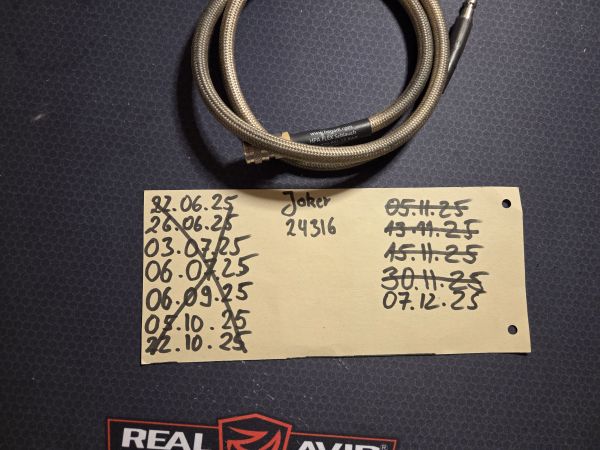 www.hogarti.com
HPA FLEX Schlauch
22.06.25
26.06.25
03.07.25
06.07.25
06.09.25
05.10.25
22.10.25
Joker
24316
05.11.25
13.11.25
15.11.25
30.11.25
07.12.25
REAL AVID